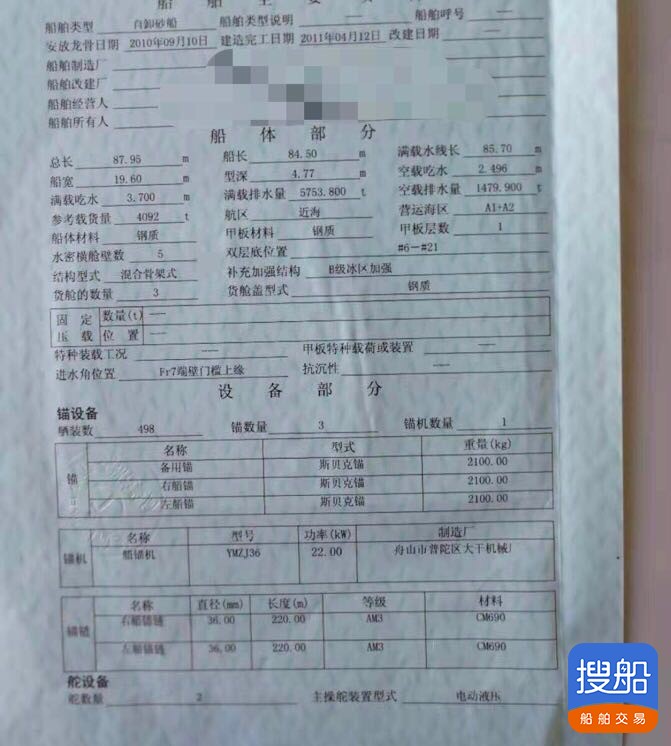 船舶主要
船舶类型 自卸砂船 船舶类型说明 — 船舶呼号 —
安放龙骨日期 2010年09月10日 建造完工日期 2011年04月12日 改建日期 —
船舶制造厂
船舶改建厂
船舶经营人
船舶所有人
船体部分
总长 87.95 m 船长 84.50 m 满载水线长 85.70 m
船宽 19.60 m 型深 4.77 m 空载吃水 2.496 m
满载吃水 3.700 m 满载排水量 5753.800 t 空载排水量 1479.900 t
参考载货量 4092 t 航区 近海 营运海区 A1+A2
船体材料 钢质 甲板材料 钢质 甲板层数 1
水密横舱壁数 5 双层底位置 #6-#21
结构型式 混合骨架式 补充加强结构 B级冰区加强
货舱的数量 3 货舱盖型式 钢质
固定 数量(t) —
压载 位置 —
特种装载工况 — 甲板特种载荷或装置 —
进水角位置 Fr7端壁门槛上缘 抗沉性 —
设备部分
锚设备
舾装数 498 锚数量 3 锚机数量 1
名称 型式 重量(kg)
锚 备用锚 斯贝克锚 2100.00
右船锚 斯贝克锚 2100.00
左船锚 斯贝克锚 2100.00
名称 型号 功率(kW) 制造厂
锚机 船锚机 YMZJ36 22.00 舟山市普陀区大干机械厂
名称 直径(mm) 长度(m) 等级 材料
锚链 右船锚链 36.00 220.00 AM3 CM690
左船锚链 36.00 220.00 AM3 CM690
舵设备
舵数量 2 主操舵装置型式 电动液压
搜船
船舶交易